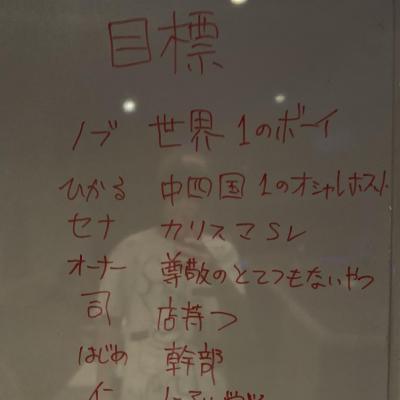 目標
ノブ 世界1のボーイ
ひかる 中四国1のオシャレホスト
セナ カリスマSV
オーナー 尊敬のとてつもないやつ
司 店持つ
はじめ 幹部